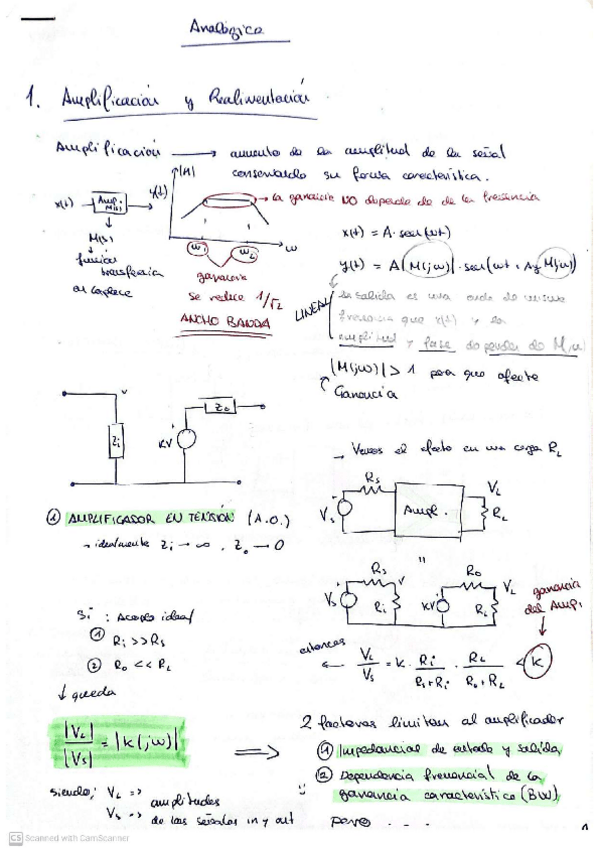 Analógica
1. Amplificación y Realimentación
Amplificación → aumento de la amplitud de la señal
conservando su forma característica.
x(t) → Amp. M(s) → y(t)
|M|
→ la ganancia NO depende de la frecuencia
M(s)
función
transferencia
en Laplace
ω1
ω2
ω
ganancia
se reduce 1/√2
ANCHO BANDA
x(t) = A·sen(ωt)
y(t) = A|M(jω)|·sen(ωt + Arg M(jω))
LINEAL
la salida es una onda de misma
frecuencia que x(t) y la
amplitud y fase dependen de M(s)
|M(jω)| > 1 para que afecte
Ganancia
V
Zi
KV
Zo
→ Vemos el efecto en una carga RL
Rs
Vs
Ampl.
VL
RL
① AMPLIFICADOR EN TENSIÓN (A.O.)
- idealmente Zi → ∞ , Zo → 0
"
Rs
V
Ro
VL
Vs
Ri
KV
RL
ganancia
del Ampl
Si : Acoplo ideal
① Ri >> Rs
② Ro << RL
↓ queda
entonces
VL/Vs = K · Ri/(Rs+Ri) · RL/(Ro+RL) < K
|VL|/|Vs| = |K(jω)|
⇒
2 factores limitan al amplificador
① Impedancias de entrada y salida
② Dependencia frecuencial de la
ganancia característica (BW)
siendo; VL =>
Vs =>
amplitudes
de las señales in y out
pero ....
CS Scanned with CamScanner